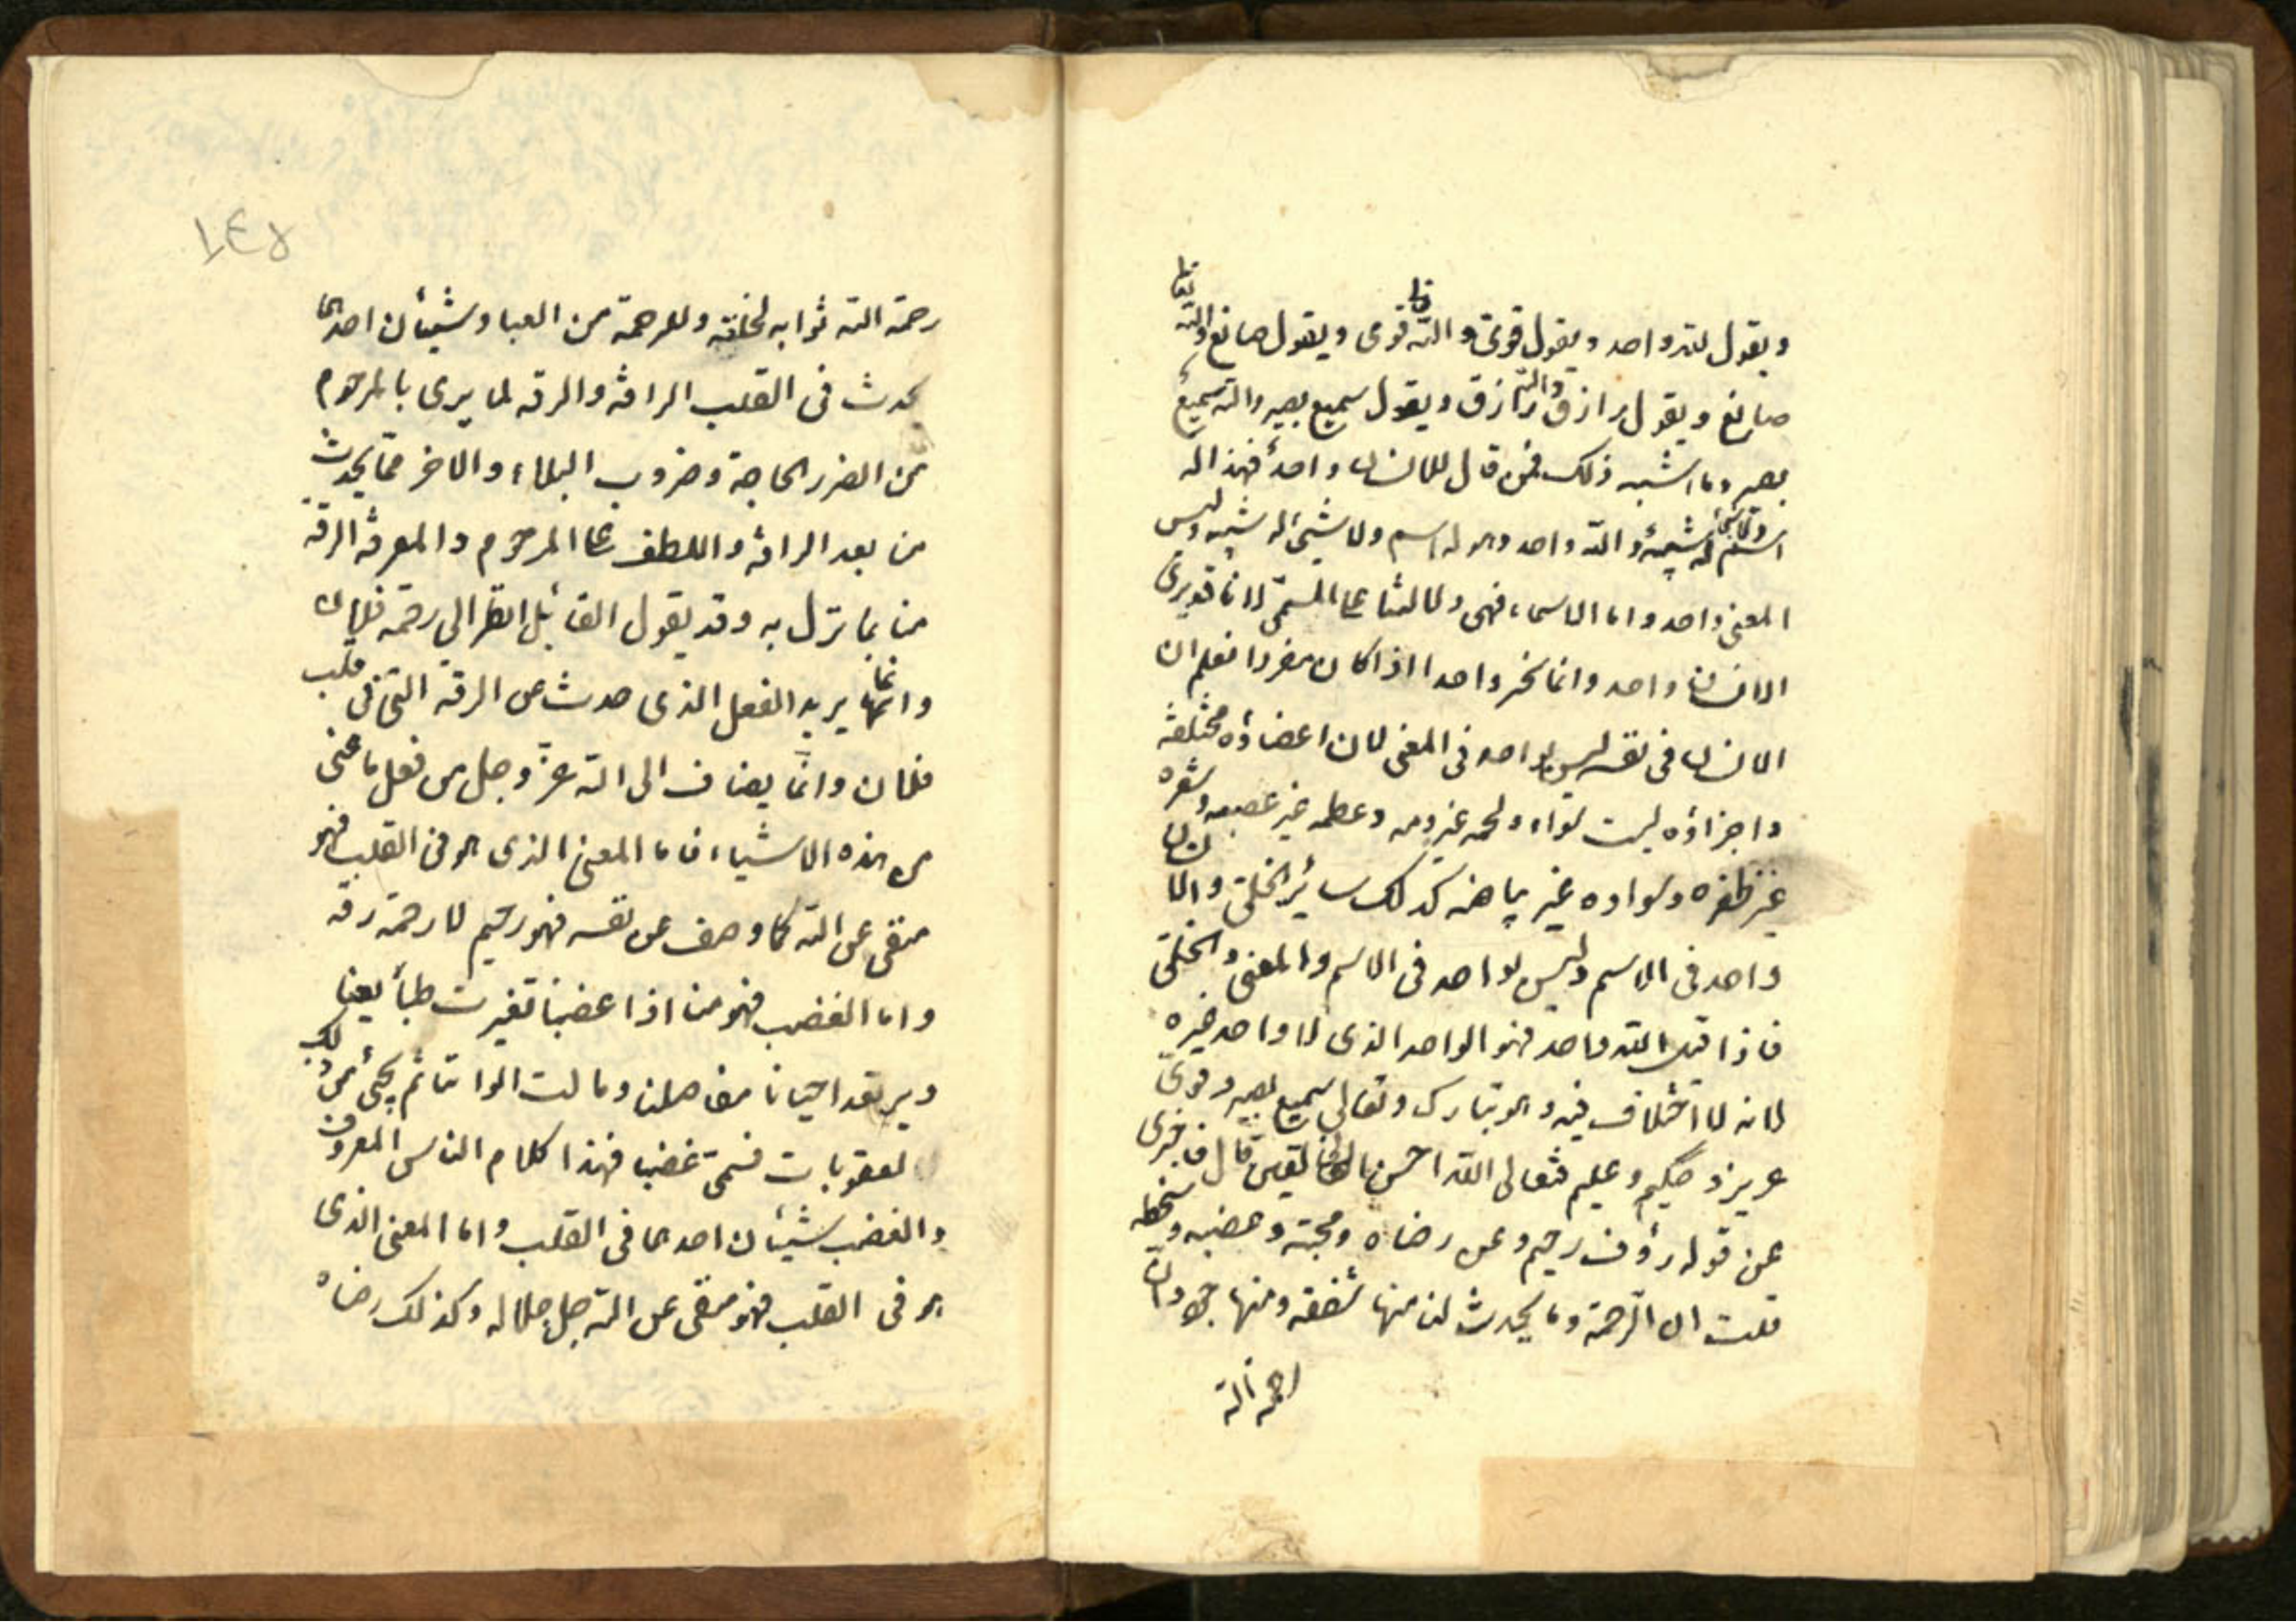 ويقول لله واحد ويقول قوى والله تعا قوى ويقول صانع والله تعا
صانع ويقول رازق والله رازق ويقول سميع بصير والله سميع
بصير وما اشبه ذلك فمن قال للانسان واحد فهذا له
اسم وله شبيه والله واحد وهو له اسم ولا شيئ له شبيه وليس
المعنى واحد واما الاسماء فهى دلالتنا على المسمى لانا قد يرى
الانسان واحد وانما نخبر واحدا اذا كان مفردا فعلم ان
الانسان فى نفسه ليس بواحد فى المعنى لان اعضاؤه مختلفة
واجزاؤه ليست سواء ولحمه غير دمه وعظمه غير عصبه وشعره
غير ظفره وسواده غير بياضه كذلك سائر الخلق والانسان
واحد فى الاسم وليس بواحد فى الاسم والمعنى والخلق
فاذا قيل لله واحد فهو الواحد الذى لا واحد غيره
لانه لا اختلاف فيه وهو تبارك وتعالى سميع بصير وقوى
عزيز وحكيم وعليم فتعالى الله احسن الخالقين قال فاخبرنى
عن قوله رؤف رحيم وعن رضاه ومحبته وغضبه وسخطه
قلت ان الرحمة وما يحدث لنا منها شفقة ومنها جود وان
رحمة الله
١٤٥
رحمة الله ثوابه لخلقه وللرحمة من العباد شيئان احدهما
يحدث فى القلب الرافة والرقه لما يرى بالمرحوم
من الضر والحاجة وضروب البلاء والاخر مما يحدث
من بعد الرافة واللطف على المرحوم والمعرفة الرقة
منا بما نزل به وقد يقول القائل انظر الى رحمة فلان
وانما يريد الفعل الذى حدث عن الرقة التى فى قلب
فلان وانما يضاف الى الله عز وجل من فعل ما عنى
من هذه الاشياء فاما المعنى الذى هو فى القلب فهو
منفى عن الله كما وصف عن نفسه فهو رحيم لا رحمة رقة
واما الغضب فهو منا اذا غضبنا تغيرت طبائعنا
ويرتعد احيانا مفاصلنا وحالت الواننا ثم يجئ من ذلك
العقوبات فسمى غضبا فهذا كلام الناس المعروف
والغضب شيئان احدهما فى القلب واما المعنى الذى
هو فى القلب فهو منفى عن الله جل جلاله وكذلك رضاه